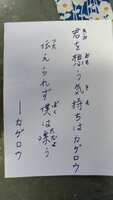 君を想う気持ちはカゲロウ
伝えられず僕は漂う
——カゲロウ